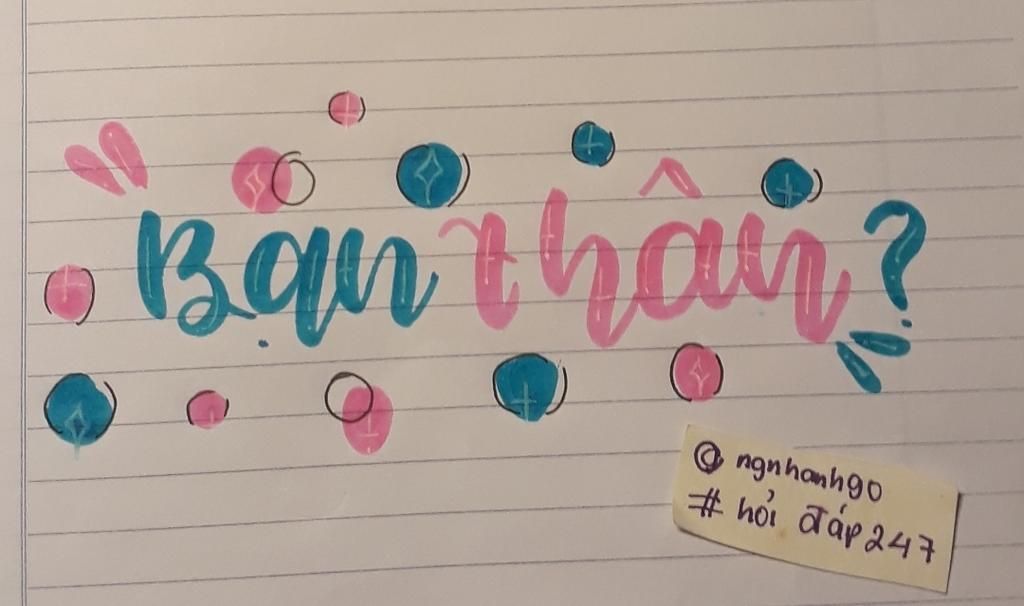 Bạn thân?
@ngnhanhgo
# hỏi đáp247